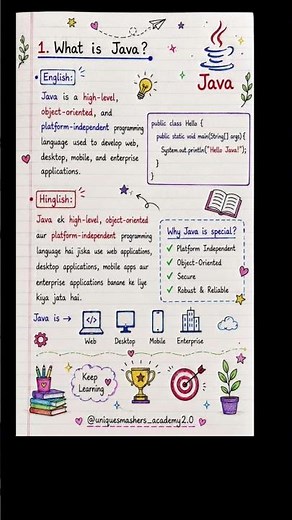 1. What is Java?
Java
• English:
Java is a high-level,
object-oriented, and
platform-independent programming
language used to develop web,
desktop, mobile, and enterprise
applications.
public class Hello {
public static void main(String[] args){
System.out.println("Hello Java!");
}
}
• Hinglish:
Java ek high-level, object-oriented
aur platform-independent programming
language hai jiska use web applications,
desktop applications, mobile apps aur
enterprise applications banane ke liye
kiya jata hai.
Why Java is special?
✓ Platform Independent
✓ Object-Oriented
✓ Secure
✓ Robust & Reliable
Java is →
</>
Web
Desktop
Mobile
Enterprise
Keep
Learning
@uniquesmashers_academy2.0